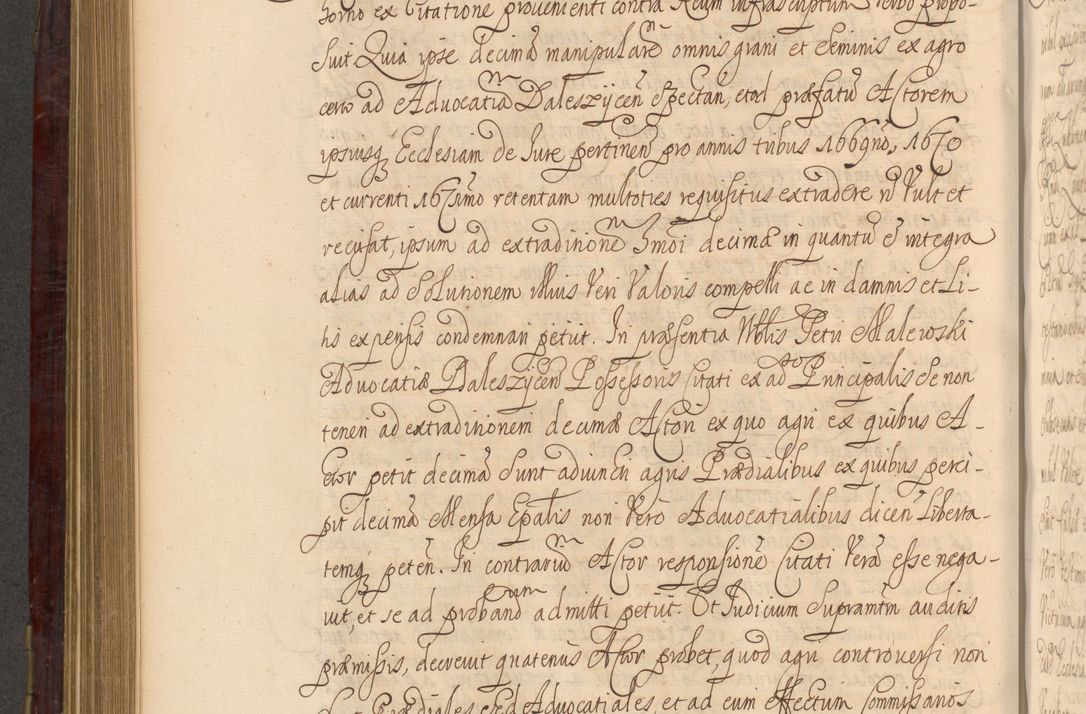 torno ex Citatione provenienti contra Reum infrascriptum Verbo propo-
suit Quia ipse decimā manipularē omnis grani et seminis ex agro
certo ad Advocatiam Daleszÿcēn spectān, et ad præfatū Actorem
ipsiusq Ecclesiam de Jure pertineñ pro annis tribus 1669nō, 1670
et currenti 1671mo retentam multoties requisitus extradere ñ Vult et
recusat, ipsum ad extraditionē mōi decimæ in quantū ē integra
alias ad Solutionem illius Veri Valoris compelli ac in damnis et Li-
tis expensis condemnari petiit. In præsentia Nblis Petri Malewski
Advocatiæ Daleszÿcēn Possessoris Citati ex ad Principalis se non
tenen ad extraditionem decimæ Actori ex quo agri ex quibus A-
ctor petit decimā sunt adiuncti agris Prædialibus ex quibus perci-
pit decimā Mensa Epālis non Vero Advocatialibus dicen Liberta-
temq peteñ. In contrariū Actor responsionē Citati Verā esse nega-
vit, et se ad probandum admitti petiit. Et Judicium Supranttm auditis
præmissis, decrevit quatenus Actor probet, quod agri controversi non
sint Prædiales sed Advocatiales, et ad eum effectum Commissarios